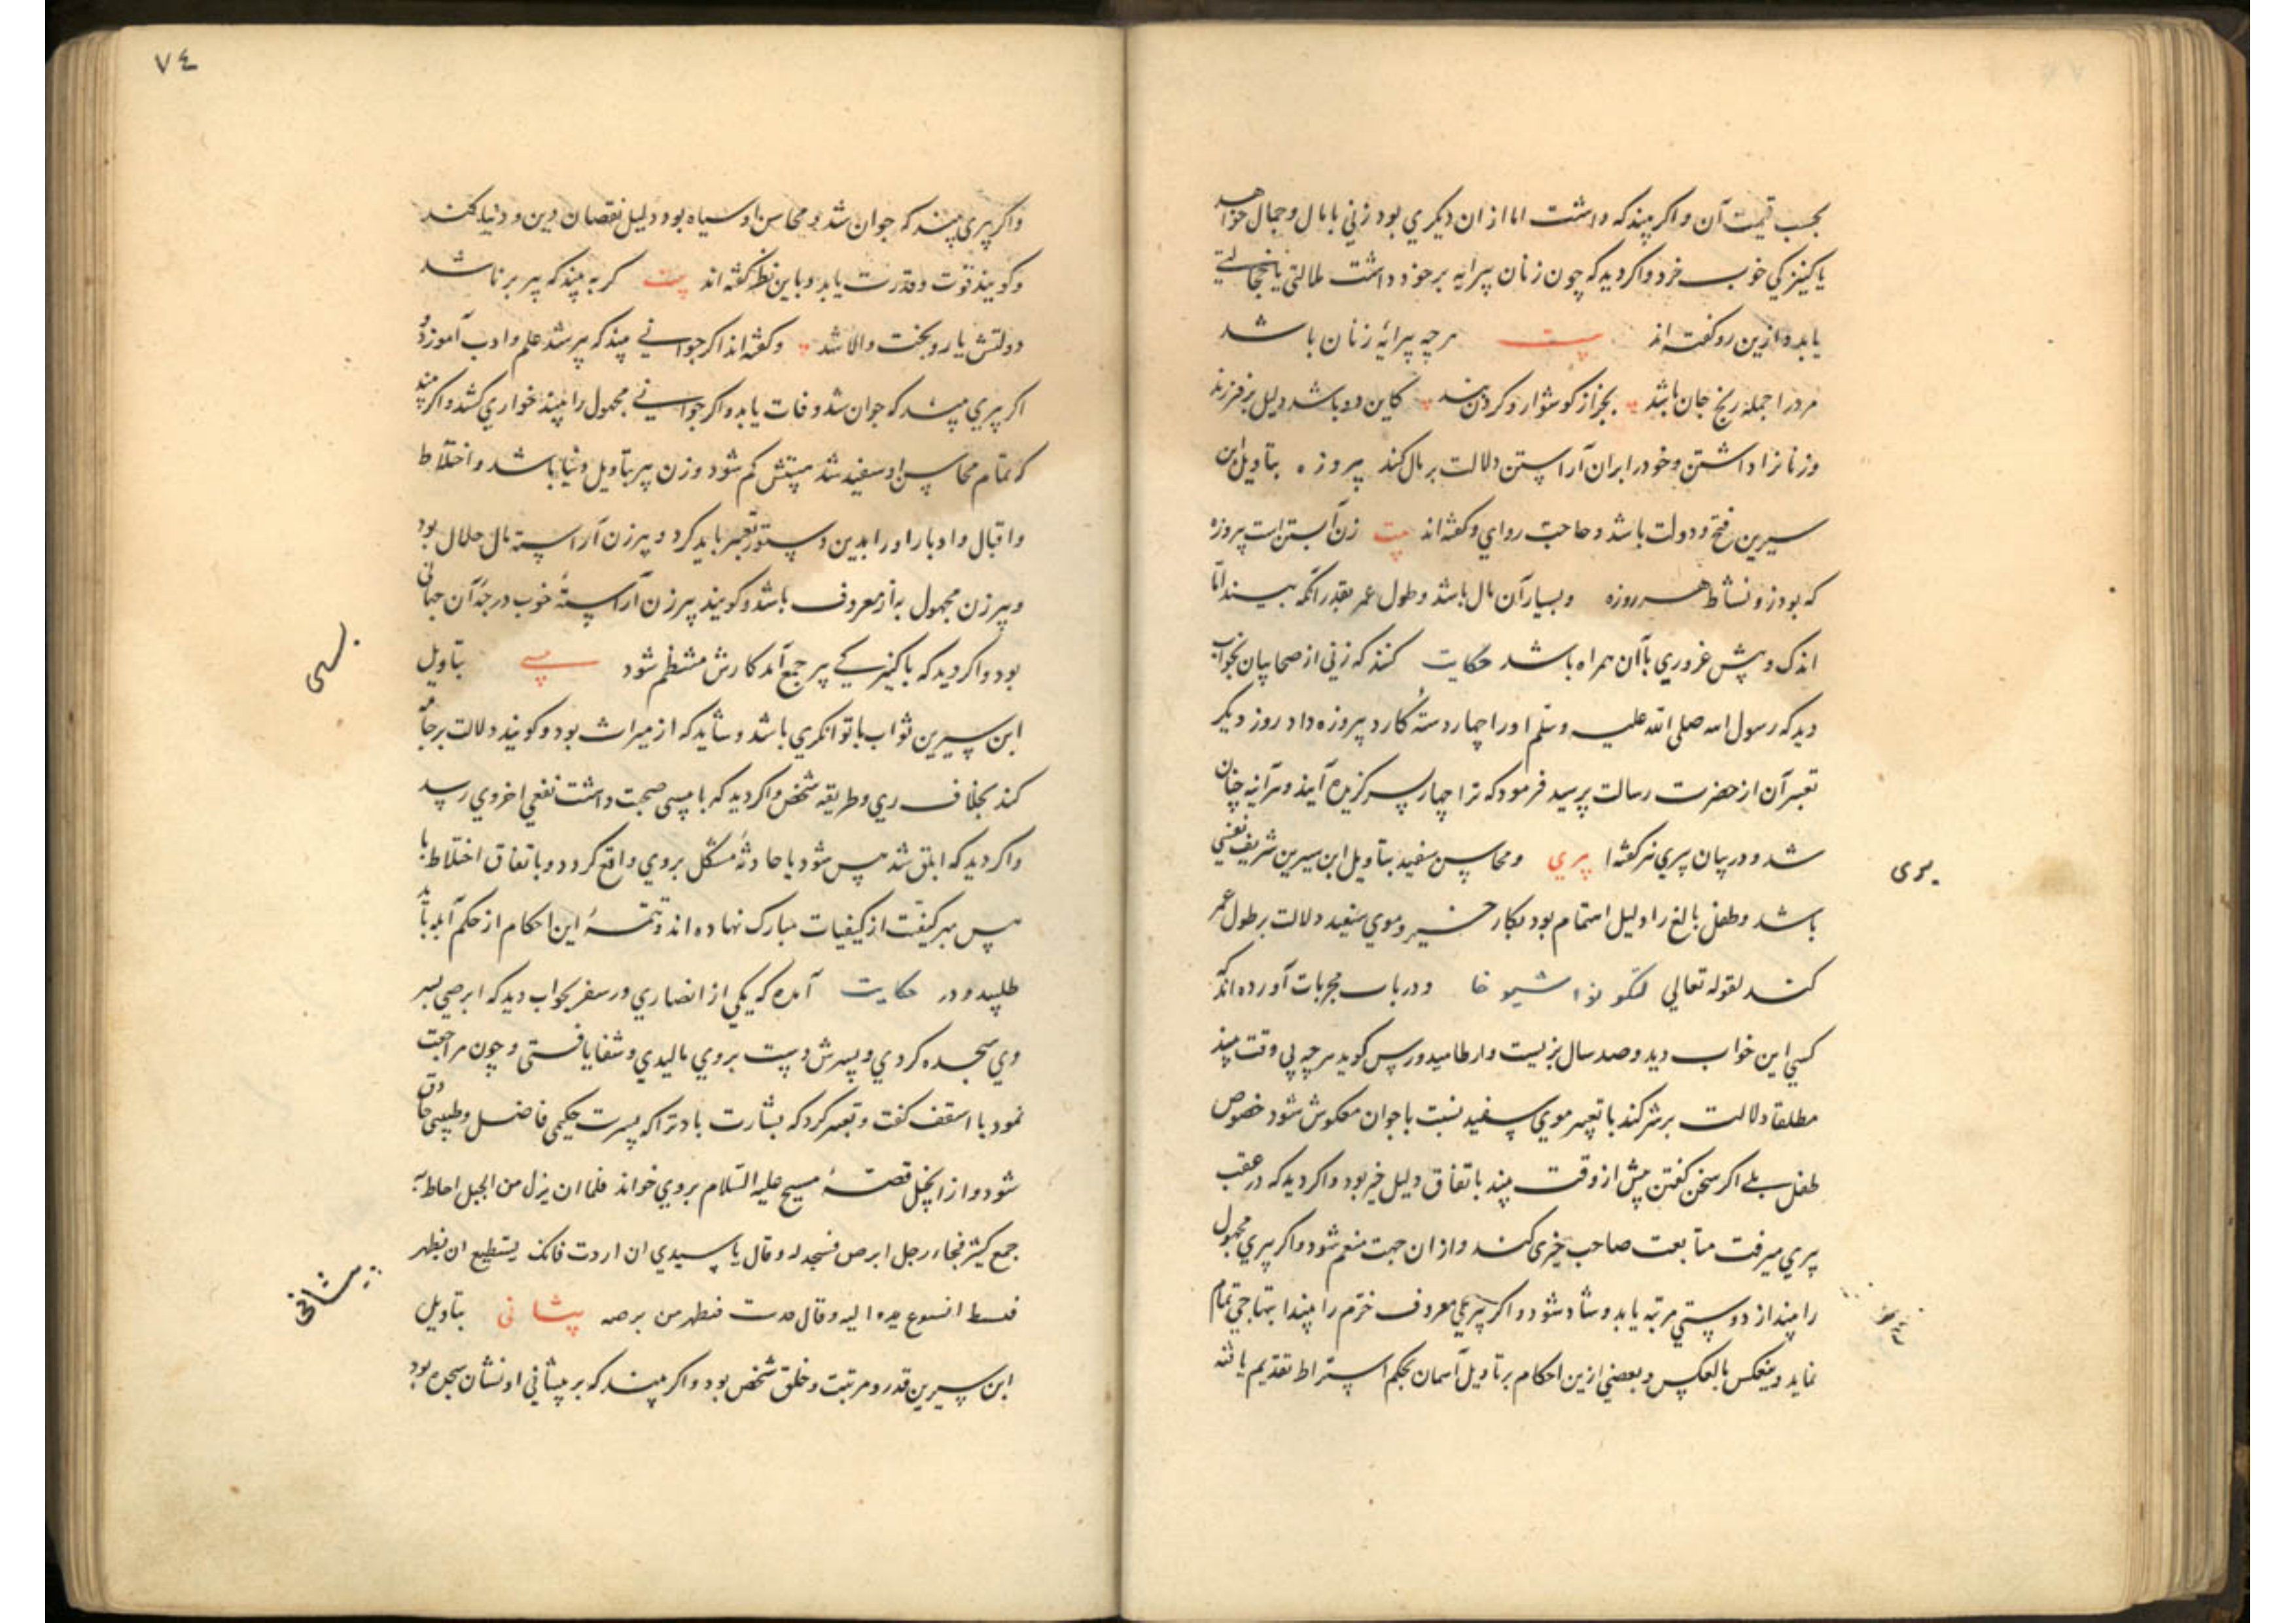 بحسب قیمت آن و اکر بیند که داشت اما از ان دیکری بود زنی با مال و جمال خواهد
یا کنیزکی خوب خرد و اکر دید که چون زنان پیرایه بر خود داشت ملالتی یا خجالتی
یابد و ازین رو کفته اند بیت هرچه پیرایهٔ زنان باشد
مرد را جمله رنج جان باشد بجز از کوشوار و کردن بند کاین دو باشد دلیل بر فرزند
و زنانرا داشتن و خود را بران آراستن دلالت بر مال کند پیروزه بتاویل ابن
سیرین فتح و دولت باشد و حاجت روایی و کفته اند بیت زن آبستن است پیروزه
که بود زو نشاط هر روزه و بسیار آن مال باشد و طول عمر بقدر انکه بیند اما
اندک و بیش غروری با آن همراه باشد حکایت کنند که زنی از صحابیان بخواب
دید که رسول الله صلی الله علیه وسلم او را چهار دستهٔ کارد پیروزه داد روز دیکر
تعبیر آن از حضرت رسالت پرسید فرمود که ترا چهار پسر کزیده آیند و هرآینه چنان
شد و در بیان پیری نیز کفته ا پیری و محاسن سفید بتاویل ابن سیرین شریف نفسی
باشد و طفل بالغ را دلیل اهتمام بود بکار خیر و موی سفید دلالت بر طول عمر
کند لقوله تعالی لتکونوا شیوخا و در باب مجربات آورده اند که
کسی این خواب دید و صد سال بزیست و ارطامیدورس کوید هرچه بی وقت بیند
مطلقا دلالت بر شر کند با تعبیر موی سفید نسبت با جوان معکوس شود خصوص
طفل بلی اکر سخن کفتن پیش از وقت بیند باتفاق دلیل خیر بود و اکر دید که در عقب
پیری میرفت متابعت صاحب خیری کند و از ان جهت منعم شود و اکر پیری مجهول
را بیند از دوستی مرتبه یابد و شاد شود و اکر پیری معروف خرم را بیند ابتهاجی تمام
نماید و ینعکس بالعکس و بعضی ازین احکام بر تاویل آسمان بحکم استراط تقدیم یافته
پیری
٧٤
و اکر پیری بیند که جوان شد و محاسن او سیاه بود دلیل نقصان دین و دنیا کند
و کویند قوت و قدرت یابد و باین نظر کفته اند بیت کر به بیند که پیر برنا شد
دولتش یار و بخت والا شد و کفته اند اکر جوانی بیند که پیر شد علم و ادب آموزد و
اکر پیری بیند که جوان شد وفات یابد و اکر جوانی مجهول را بیند خواری کشد و اکر بیند
که تمام محاسن او سفید شد هیبتش کم شود و زن پیر بتاویل دنیا باشد و اختلاط
و اقبال و ادبار او را بدین دستور تعبیر باید کرد و پیر زن آراسته مال حلال بود
و پیر زن مجهول به از معروف باشد و کویند پیر زن آراستهٔ خوب درجهٔ آن جهانی
بود و اکر دید که با کنیزکی پیر جمع آمد کارش منتظم شود پیسی بتاویل
ابن سیرین ثواب با توانکری باشد و شاید که از میراث بود و کویند دلالت بر جامه
کند بخلاف زی و طریقه شخص و اکر دید که با پیسی صحبت داشت نفعی اخروی رسد
و اکر دید که ابلق شد پیس شود یا حادثهٔ مشکل بروی واقع کردد و باتفاق اختلاط با
پیس بهر کیفیت از کیفیات مبارک نهاده اند و تتمهٔ این احکام از حکم آبله باید
طلبید و در حکایت آمده که یکی از انصاری در سفر بخواب دید که ابرصی بسر
وی سجده کردی و پسرش دست بروی مالیدی و شفا یافتی و چون مراجعت
نمود با اسقف کفت و تعبیر کرد که بشارت باد ترا که پسرت حکیمی فاضل و طبیبی حاذق
شود و از انجیل قصهٔ مسیح علیه السلام بروی خواند فلما ان یزل من الجبل احاط به
جمع کثیر فجاء رجل ابرص فسجد له و قال یا سیدی ان اردت فانک یستطیع ان یطهر
فبسط یده الیه و قال فطهر من برصه پیشانی بتاویل
ابن سیرین قدر و مرتبت و خلق شخص بود و اکر بیند که بر پیشانی او نشان سجده بود
پیسی
پیشانی